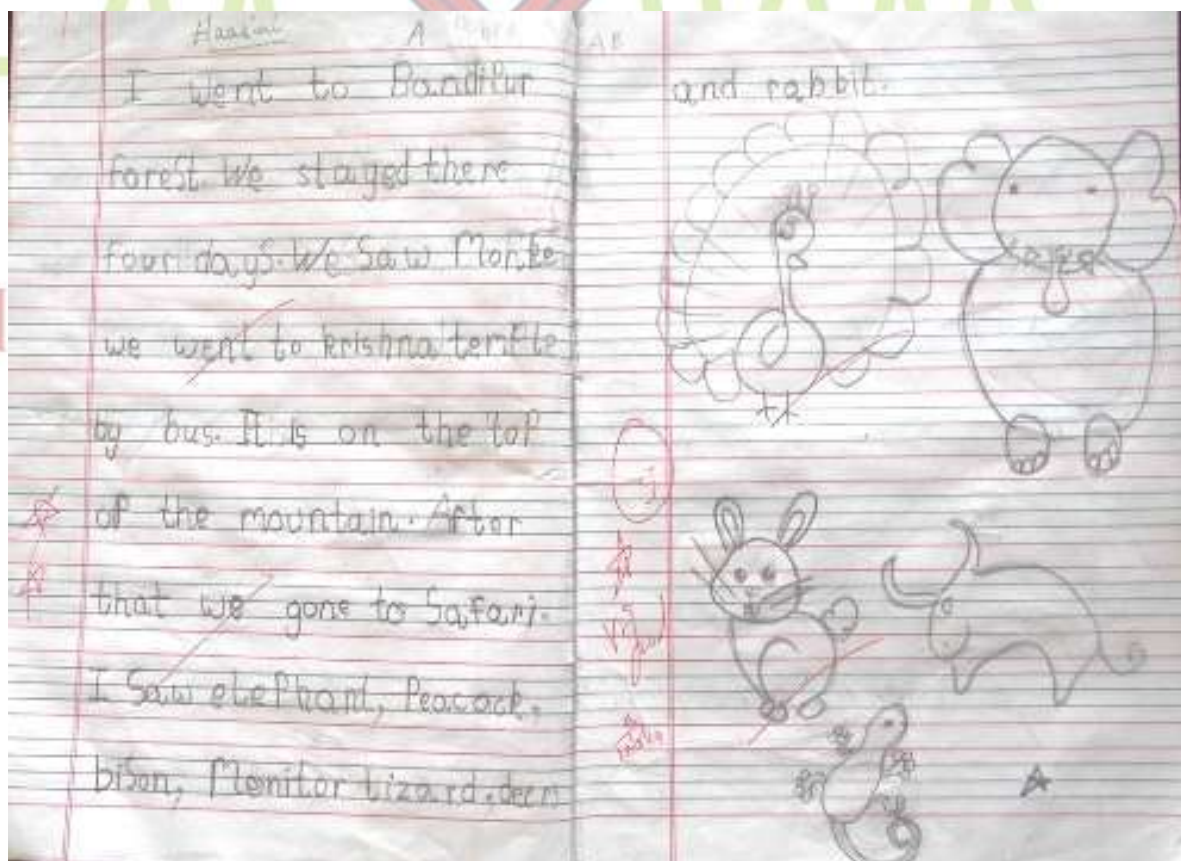 Haasini A
I went to Bandipur
forest. We stayed there
four days. We Saw Monke
we went to krishna temple
by bus. It is on the top
of the mountain. After
that we gone to Safari.
I Saw elephant, Peacock,
bison, Monitor Lizard, deer
and rabbit.